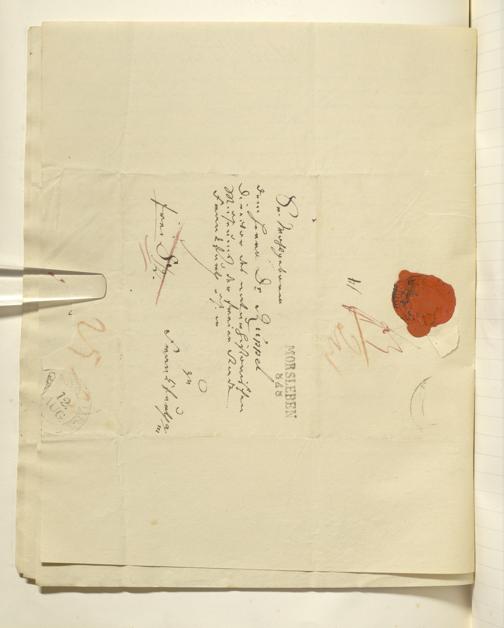 Sr. Wohlgeboren
dem Herrn Dr. Rüppel
Director des naturhistorischen
Museums der freien Stadt
Frankfurt a/M
zu
Frankfurt a/m
frei
MORSLEBEN
8/8
14
25
12
AUG